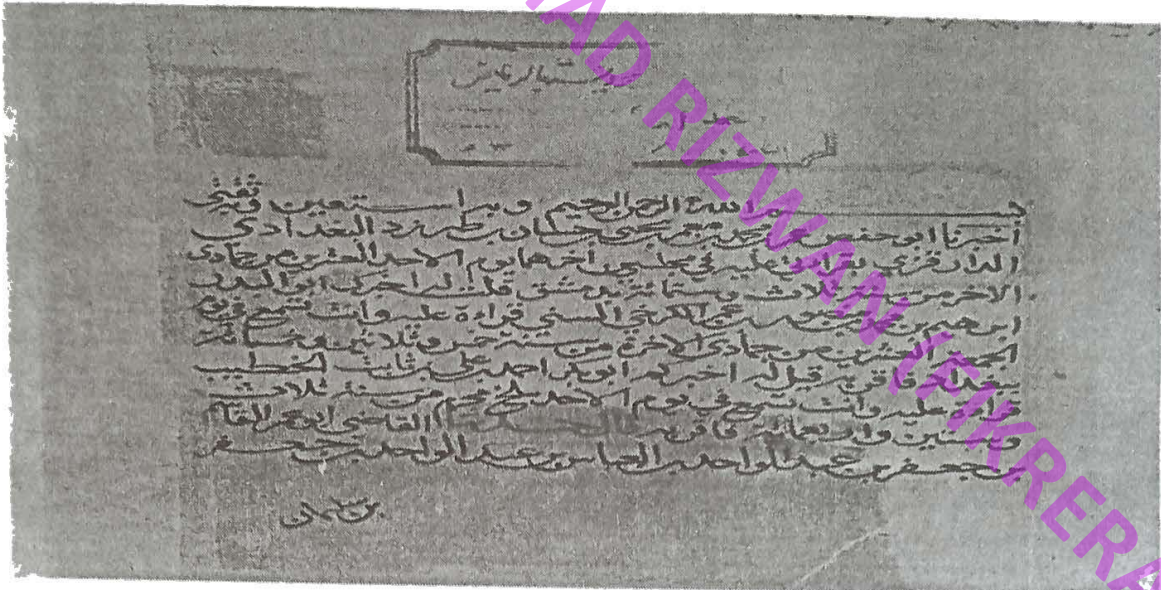 AD RIZWAN (FIKRERA
بسم الله الرحمن الرحيم وبه استعين وهو ثقتي
اخبرنا ابو حفص عمر بن محمد بن معمر بن يحيى بن حسان بن طبرزد البغدادي
الدارقزي بقراءتي عليه في مجلسين اخرهما يوم الاحد العشرين من جمادى
الاخرة من سنة ثلاث وستمائة بدمشق قلت له اخبركم ابو البدر
ابرهيم بن محمد بن منصور بن عمر الكرخي قراءة عليه وانت تسمع في يوم
الجمعة العشرين من جمادى الاخرة من سنة خمس وثلاثين وخمسمائة
ببغداد فاقر به قيل له اخبركم ابو بكر احمد بن علي بن ثابت الخطيب
قراءة عليه وانت تسمع في يوم الاحد محرم من سنة ثلاث
وستين واربعمائة فاقر به القاضي ابو عمر القاسم
بن جعفر بن عبد الواحد بن العباس بن عبد الواحد بن جعفر
بن سليمان